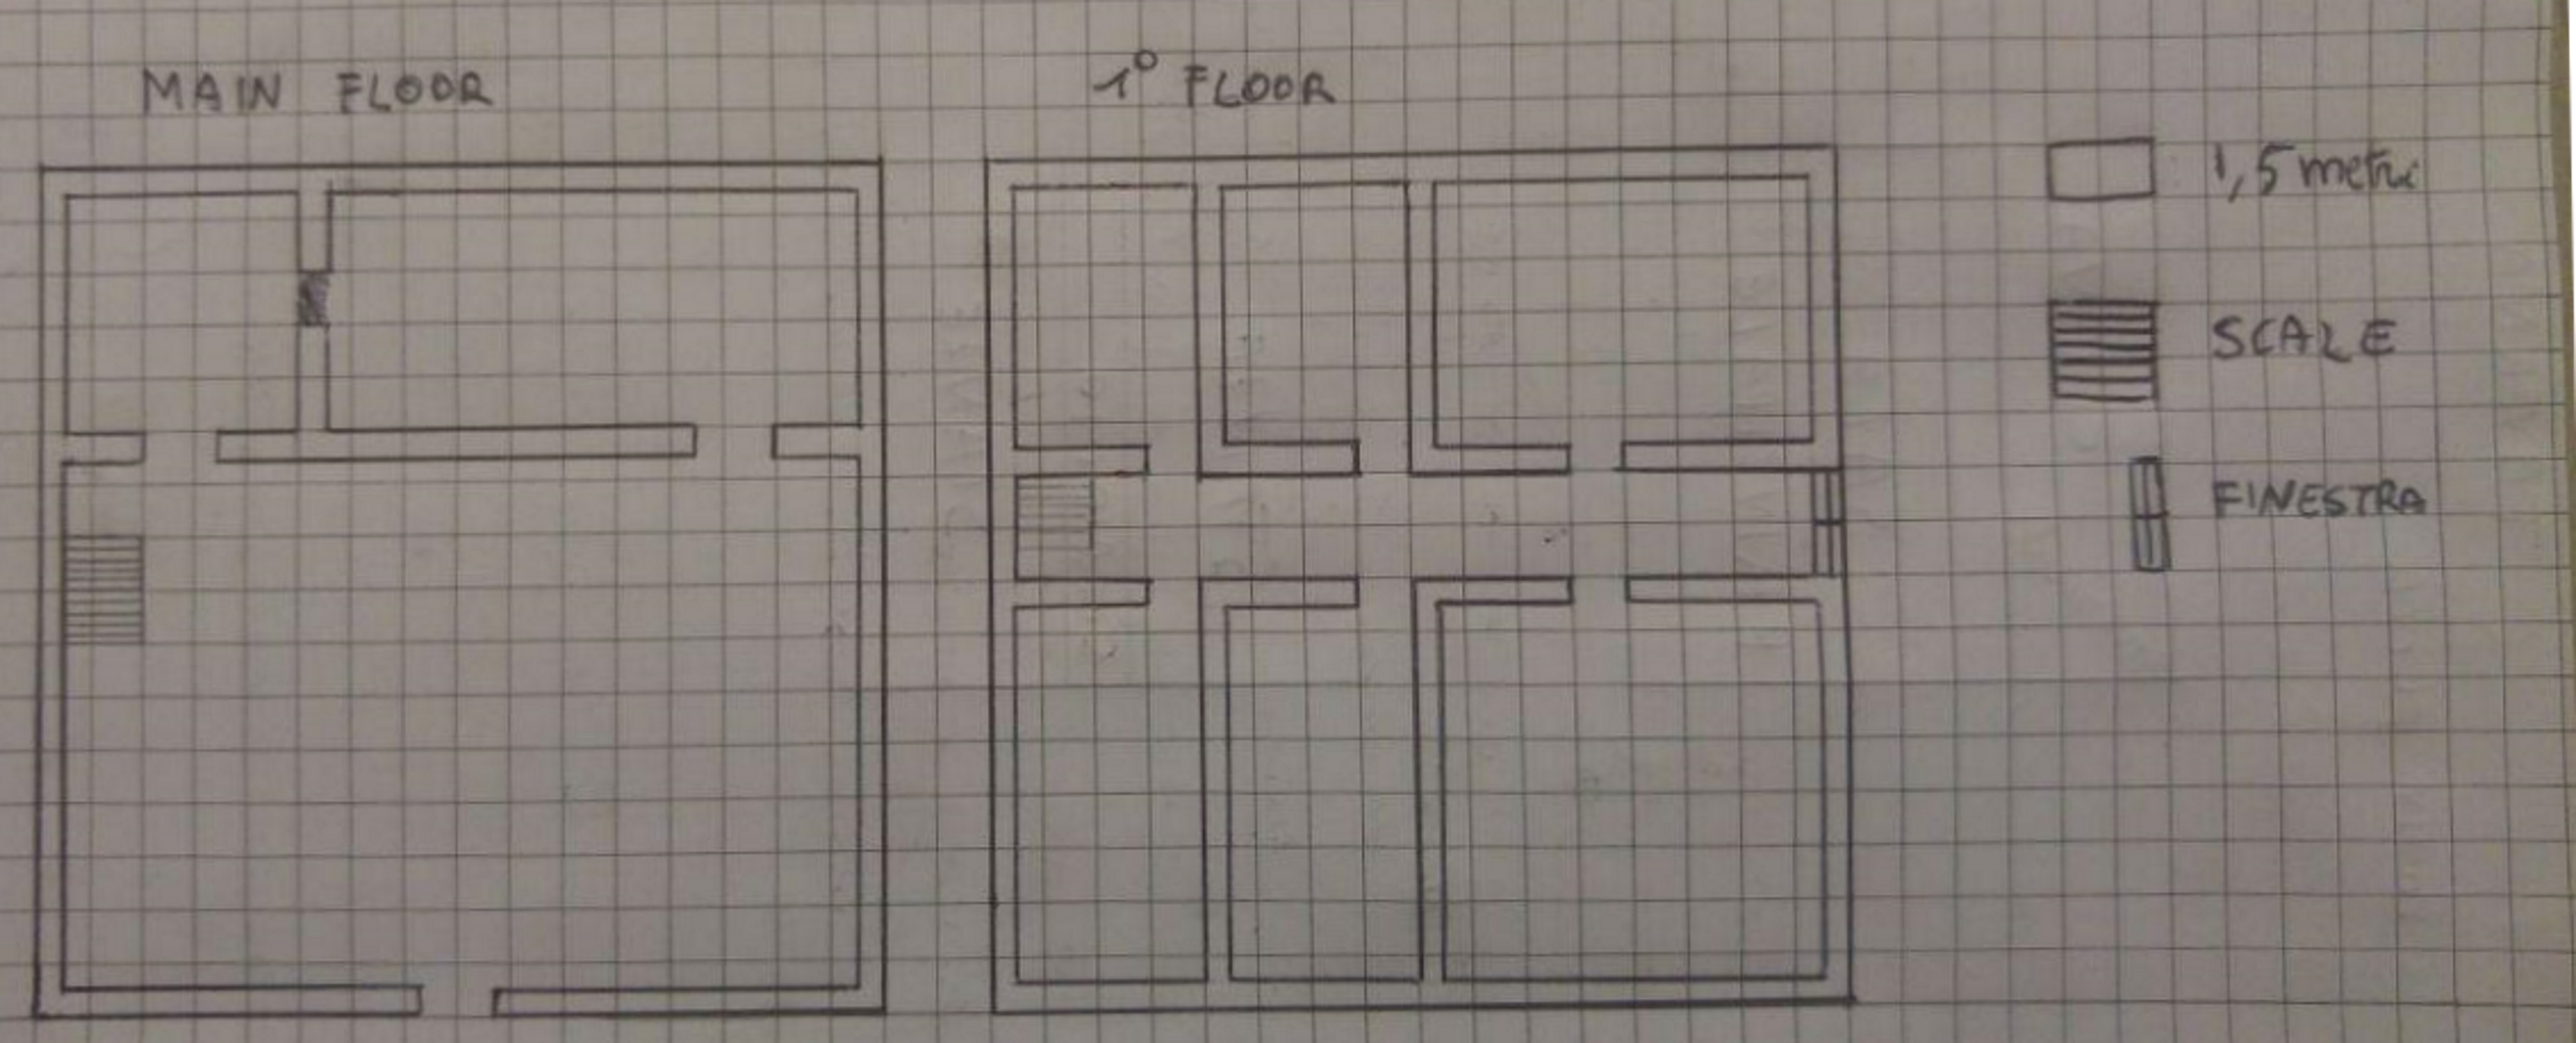 MAIN FLOOR
1° FLOOR
1,5 metri
SCALE
FINESTRA